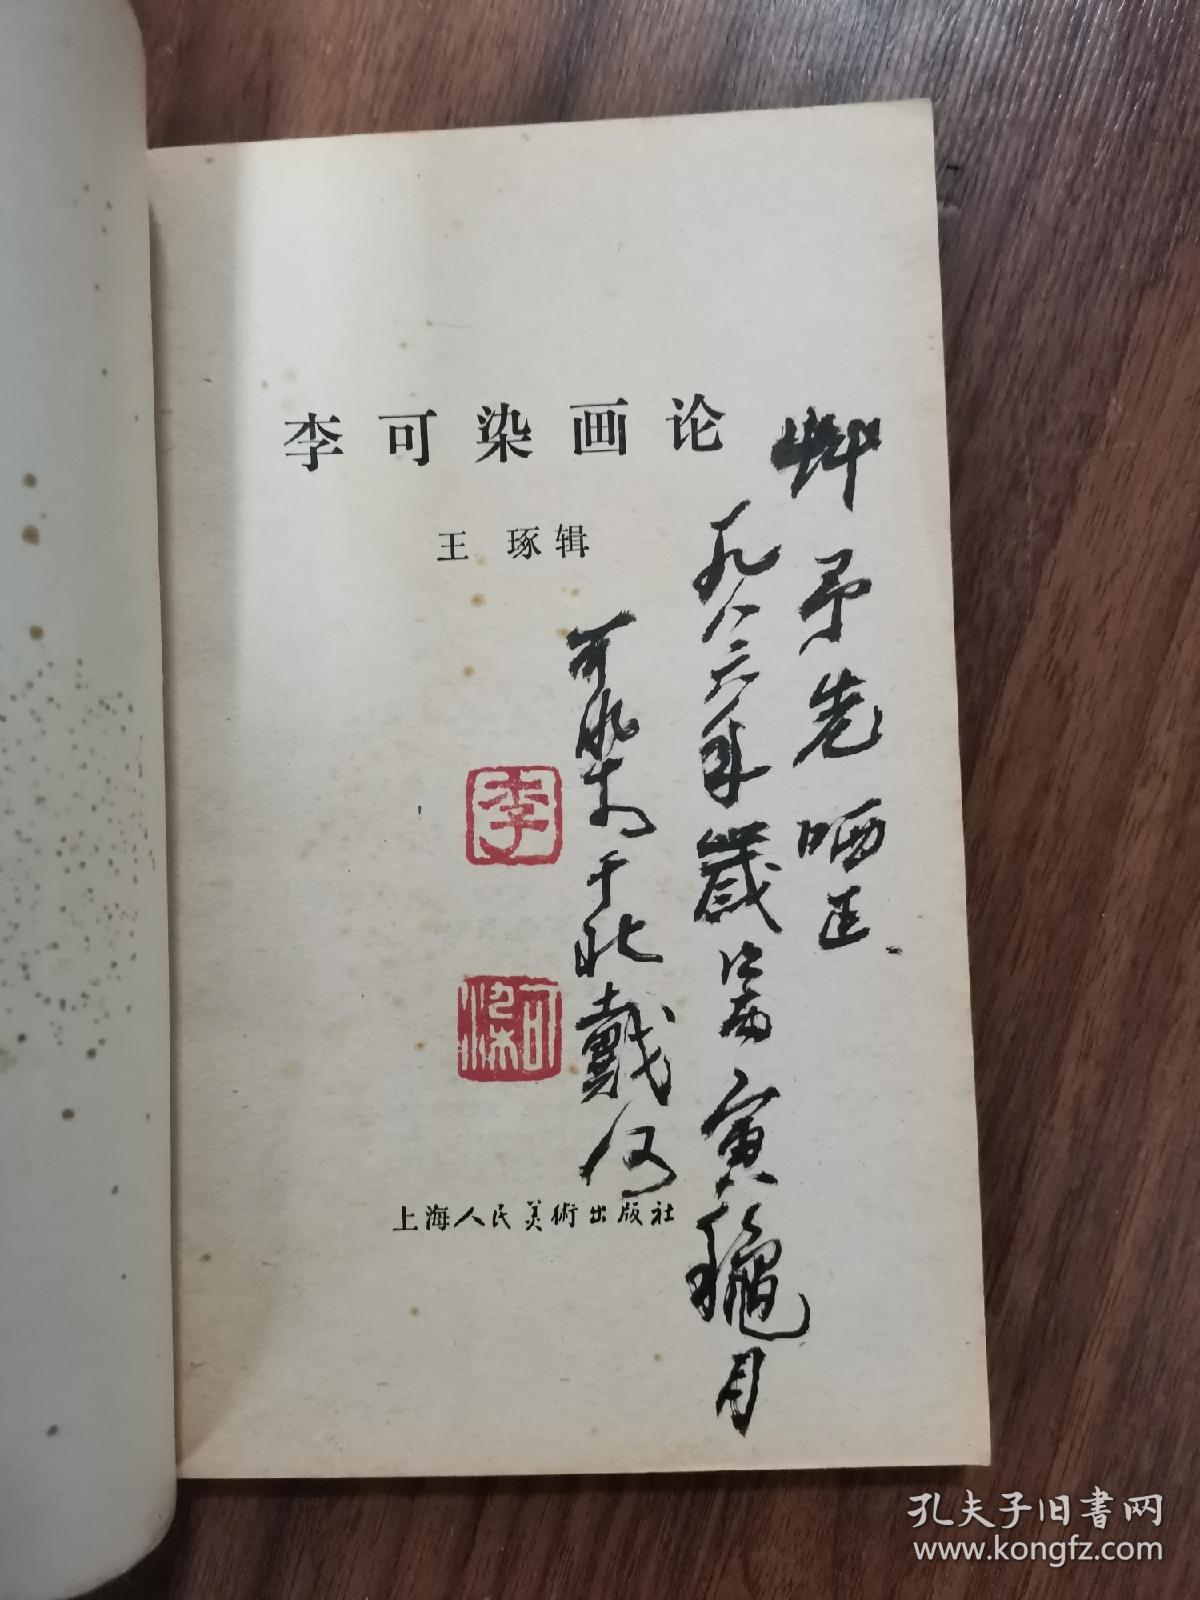 李可染画论
王 琢辑
予先哂正
一九八六年歲次丙寅穐月
可染书于北戴河
李
可染
上海人民美術出版社
孔夫子旧書网
www.kongfz.com